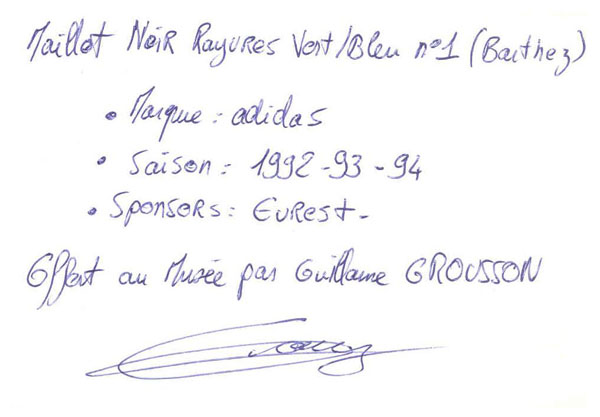 Maillot Noir Rayures Vert/Bleu n°1 (Barthez)
• Marque : adidas
• Saison : 1992-93-94
• Sponsors : Eurest-
Offert au Musée par Guillaume GROUSSON